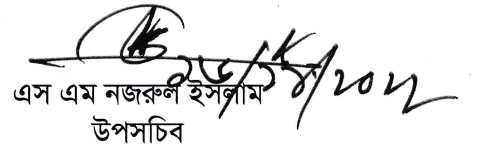 এস এম নজরুল ইসলাম
উপসচিব